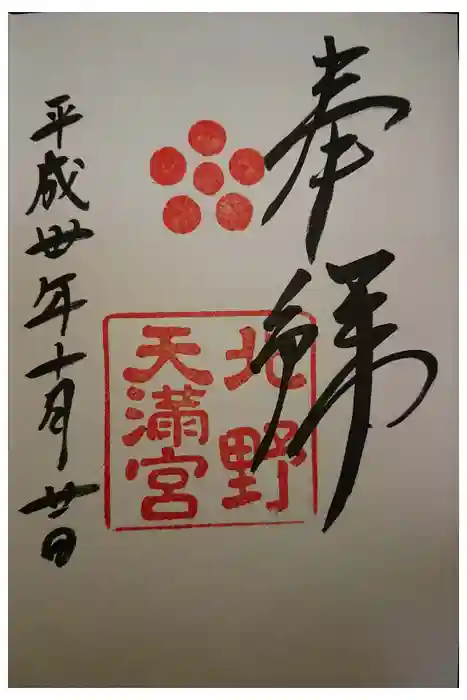 奉拝
北野
天満宮
平成卅年十月廿日